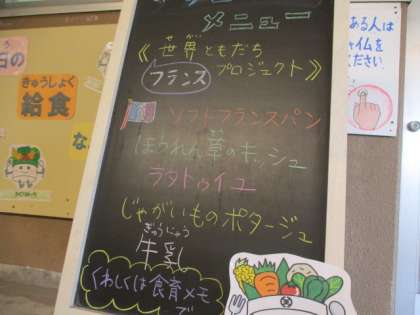 メニュー
《世界ともだち
フランス プロジェクト》
ソフトフランスパン
ほうれん草のキッシュ
ラタトゥイユ
じゃがいものポタージュ
ぎゅうにゅう
牛乳
くわしくは食育メモ
で
きゅうしょく
給食
ある人は
チャイムを
ください